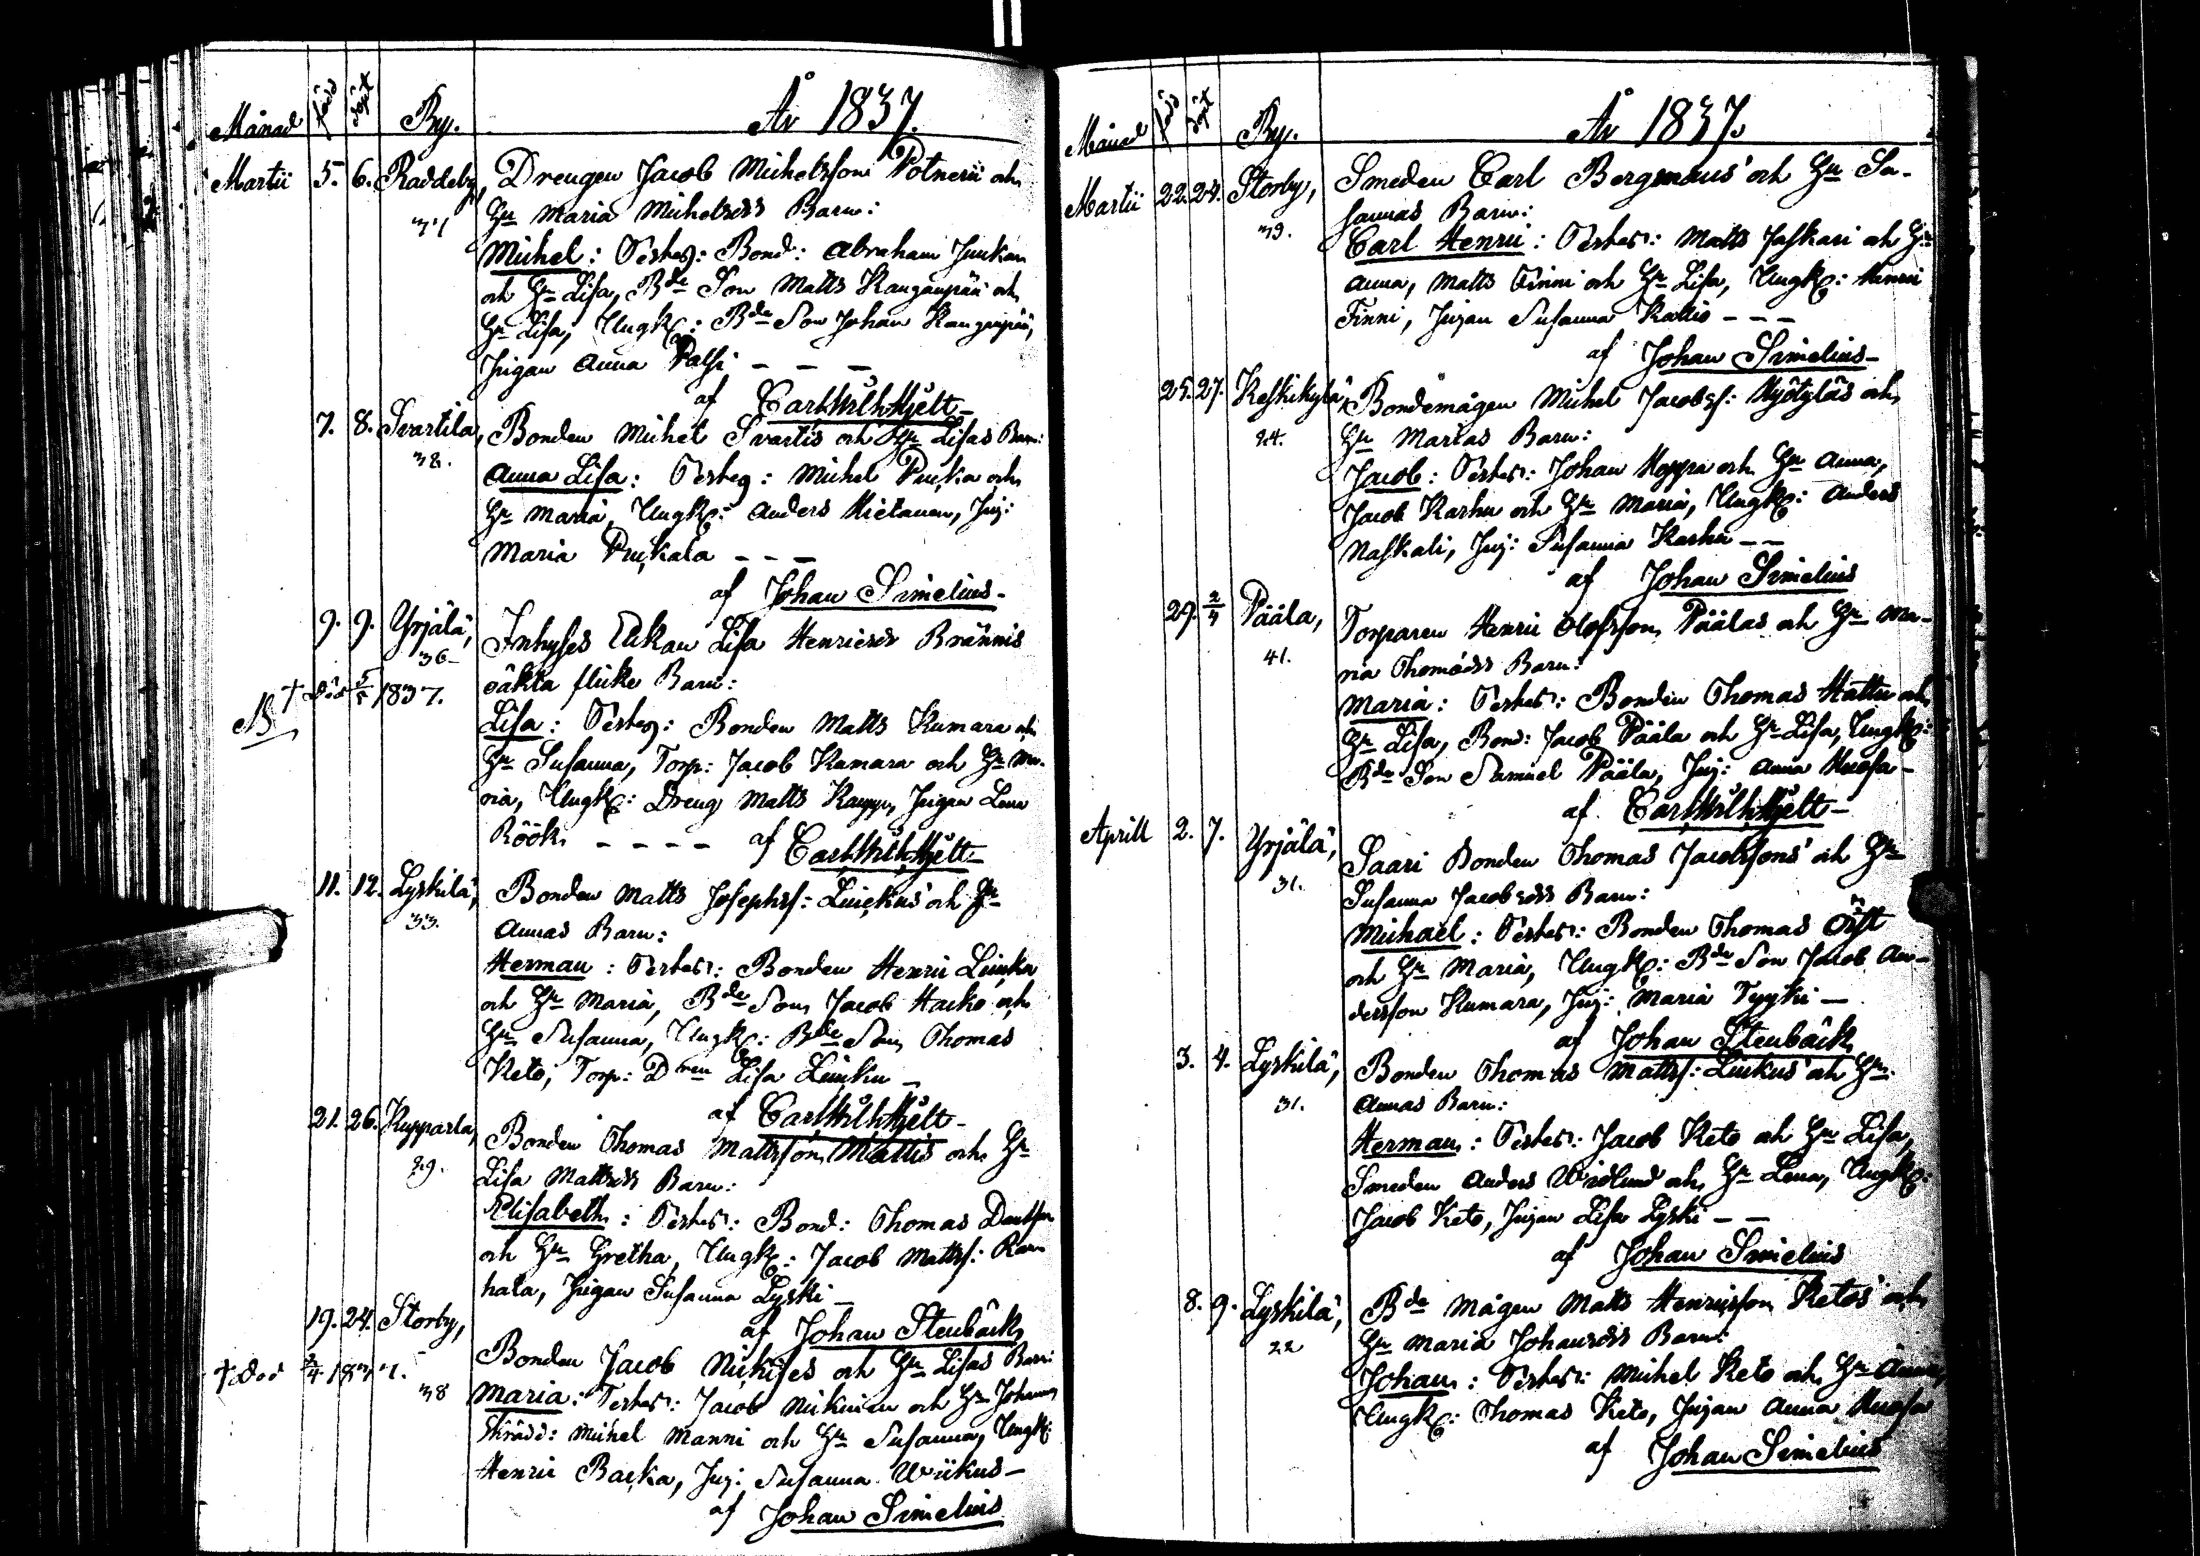 Månad född döpt By. År 1837.
Martii 5. 6. Raddeby, Drengen Jacob Michelsson Potneris och
Hu Maria Michelsdrs Barn:
Michel: Testes: Bond: Abraham Junkari
och Hu Lisa, Bde Son Matts Kangänpää och
Hu Lisa, Ungk: Bde Son Johan Kangenpää,
Pigan Anna Passi – – –
af Carl Wilh Hjelt –
7. 8. Svartila, Bonden Michel Svartis och Hu Lisas Barn:
38. Anna Lisa: Testes: Michel Pucka och
Hu Maria, Ungk: Anders Hietanen, Pig:
Maria Puckala – – –
af Johan Simelius –
9. 9. Yrjälä, Inhyses Enkan Lisa Henricsdr Brännis
36 – oäkta flicke Barn:
NB † död 5/5 1837.
Lisa: Testes: Bonden Matts Kumara och
Hu Susanna, Torp: Jacob Kumara och Hu Ma-
ria, Ungk: Dreng Matts Kauppi, Pigan Lena
Röök – – – – af Carl Wilh Hjelt –
11. 12. Lyskilä, Bonden Matts Josephss: Luickus och Hu
33. Annas Barn:
Herman: Testes: Bonden Henric Luicku
och Hu Maria, Bde Son Jacob Hacko och
Hu Susanna, Ungk: Bde Son Thomas
Keto, Torp: Dren Lisa Luicku –
af Carl Wilh Hjelt –
21. 26. Kupparla, Bonden Thomas Mattsson Mattis och Hu
29. Lisa Mattsdrs Barn:
Elisabeth: Testes: Bond: Thomas
och Hu Gretha, Ungk: Jacob Mattss: Rau-
hala, Pigan Susanna Lyski –
af Johan Stenbäck
19. 24. Storby, Bonden Jacob Nickises och Hu Lisas Barn:
† död 2/4 1837.
38 Maria: Testes: Jacob Nikuisen och Hu Johanna,
Skrädd: Michel Manni och Hu Susanna, Ungk:
Henric Backa, Pig: Susanna Wiikus –
af Johan Simelius
Månad född döpt By. År 1837.
Martii 22. 24. Storby, Smeden Carl Bergmans och Hu Su-
39. sannas Barn:
Carl Henric: Testes: Matts Jaskari och Hu
Anna, Matts Finni och Hu Lisa, Ungk: Henric
Finni, Pigan Susanna Kallio – – –
af Johan Simelius –
25. 27. Keskikylä, Bondemågen Michel Jacobss: Hyötyläs och
24. Hu Marias Barn:
Jacob: Testes: Johan Hoppa och Hu Anna,
Jacob Karhu och Hu Maria, Ungk: Anders
Naskali, Pig: Susanna Karhu – –
af Johan Simelius
29. 2/4 Päälä, Torparen Henric Olofsson Pääläs och Hu Ma-
41. ria Thomädrs Barn:
Maria: Testes: Bonden Thomas Hattu och
Hu Lisa, Bond: Jacob Päälä och Hu Lisa, Ungk:
Bde Son Samuel Päälä, Pig: Anna Huosa –
af Carl Wilh Hjelt –
Aprill 2. 7. Yrjälä, Saari Bonden Thomas Jacobssons och Hu
31. Susanna Jacobsdrs Barn:
Michael: Testes: Bonden Thomas Öist
och Hu Maria, Ungk: Bde Son Jacob An-
dersson Kumara, Pig: Maria Tyyki –
af Johan Stenbäck
3. 4. Lyskilä, Bonden Thomas Mattss: Luckus och Hu
31. Annas Barn:
Herman: Testes: Jacob Keto och Hu Lisa,
Smeden Anders Widlund och Hu Lena, Ungk:
Jacob Keto, Pigan Lisa Lyski – –
af Johan Simelius
8. 9. Lyskilä, Bde Mågen Matts Henricsson Ketos och
22 Hu Maria Johansdrs Barn:
Johan: Testes: Michel Keto och Hu Anna,
Ungk: Thomas Keto, Pigan Anna Huosa
af Johan Simelius